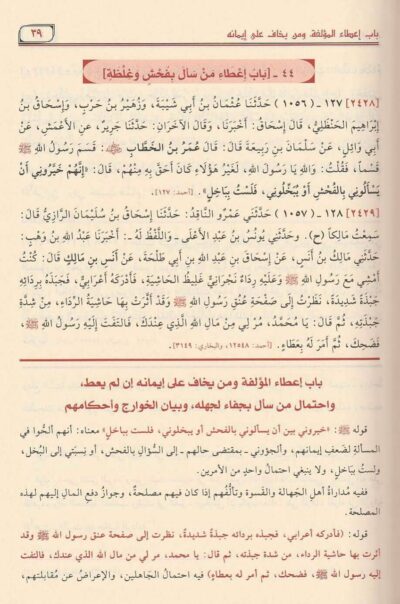 باب إعطاء المؤلفة ومن يخاف على إيمانه
٣٩
٤٤ - [بَابُ إِعْطَاءِ مَنْ سَأَلَ بِفُحْشٍ وَغِلْظَةٍ]
[٢٤٢٨] ١٢٧ - (١٠٥٦) حَدَّثَنَا عُثْمَانُ بْنُ أَبِي شَيْبَةَ، وَزُهَيْرُ بْنُ حَرْبٍ، وَإِسْحَاقُ بْنُ
إِبْرَاهِيمَ الحَنْظَلِيُّ، قَالَ إِسْحَاقُ: أَخْبَرَنَا، وَقَالَ الآخَرَانِ: حَدَّثَنَا جَرِيرٌ، عَنِ الأَعْمَشِ، عَنْ
أَبِي وَائِلٍ، عَنْ سَلْمَانَ بْنِ رَبِيعَةَ قَالَ: قَالَ عُمَرُ بْنُ الخَطَّابِ ﷺ: قَسَمَ رَسُولُ اللهِ ﷺ
قَسْماً، فَقُلْتُ: وَاللهِ يَا رَسُولَ اللهِ، لَغَيْرُ هَؤُلَاءِ كَانَ أَحَقَّ بِهِ مِنْهُمْ، قَالَ: «إِنَّهُمْ خَيَّرُونِي أَنْ
يَسْأَلُونِي بِالفُحْشِ أَوْ يُبَخِّلُونِي، فَلَسْتُ بِبَاخِلٍ». [أحمد: ١٢٧].
[٢٤٢٩] ١٢٨ - (١٠٥٧) حَدَّثَنِي عَمْرٌو النَّاقِدُ: حَدَّثَنَا إِسْحَاقُ بْنُ سُلَيْمَانَ الرَّازِيُّ قَالَ:
سَمِعْتُ مَالِكاً (ح). وحَدَّثَنِي يُونُسُ بْنُ عَبْدِ الأَعْلَى - وَاللَّفْظُ لَهُ - أَخْبَرَنَا عَبْدُ اللهِ بْنُ وَهْبٍ:
حَدَّثَنِي مَالِكُ بْنُ أَنَسٍ، عَنْ إِسْحَاقَ بْنِ عَبْدِ اللهِ بْنِ أَبِي طَلْحَةَ، عَنْ أَنَسِ بْنِ مَالِكٍ قَالَ: كُنْتُ
أَمْشِي مَعَ رَسُولِ اللهِ ﷺ وَعَلَيْهِ رِدَاءٌ نَجْرَانِيٌّ غَلِيظُ الحَاشِيَةِ، فَأَدْرَكَهُ أَعْرَابِيٌّ، فَجَبَذَهُ بِرِدَائِهِ
جَبْذَةً شَدِيدَةً، نَظَرْتُ إِلَى صَفْحَةِ عُنُقِ رَسُولِ اللهِ ﷺ وَقَدْ أَثَّرَتْ بِهَا حَاشِيَةُ الرِّدَاءِ، مِنْ شِدَّةِ
جَبْذَتِهِ، ثُمَّ قَالَ: يَا مُحَمَّدُ، مُرْ لِي مِنْ مَالِ اللهِ الَّذِي عِنْدَكَ، فَالتَفَتَ إِلَيْهِ رَسُولُ اللهِ ﷺ،
فَضَحِكَ، ثُمَّ أَمَرَ لَهُ بِعَطَاءٍ. [أحمد: ١٢٥٤٨، والبخاري: ٣١٤٩].
باب إعطاء المؤلفة ومن يخاف على إيمانه إن لم يعط،
واحتمال من سأل بجفاء لجهله، وبيان الخوارج وأحكامهم
قوله ﷺ: «خيروني بين أن يسألوني بالفحش أو يبخلوني، فلست بباخل» معناه: أنهم ألحُّوا في
المسألة لضعف إيمانهم، وألجؤوني - بمقتضى حالهم - إلى السُّؤال بالفحش، أو نِسبَتي إلى البُخل،
ولستُ بباخل، ولا ينبغي احتمالُ واحدٍ من الأمرين.
ففيه مُداراةُ أهلِ الجَهالة والقسوة وتألُّفُهم إذا كان فيهم مصلحةٌ، وجوازُ دفعِ المال إليهم لهذه
المصلحة.
قوله: (فأدركه أعرابي، فجبذه بردائه جبذةً شديدةً، نظرت إلى صفحة عنق رسول الله ﷺ وقد
أثرت بها حاشية الرداء، من شدة جبذته، ثم قال: يا محمد، مر لي من مال الله الذي عندك، فالتفت
إليه رسول الله ﷺ، فضحك، ثم أمر له بعطاءٍ) فيه احتمالُ الجَاهلين، والإعراضُ عن مُقابلتهم،